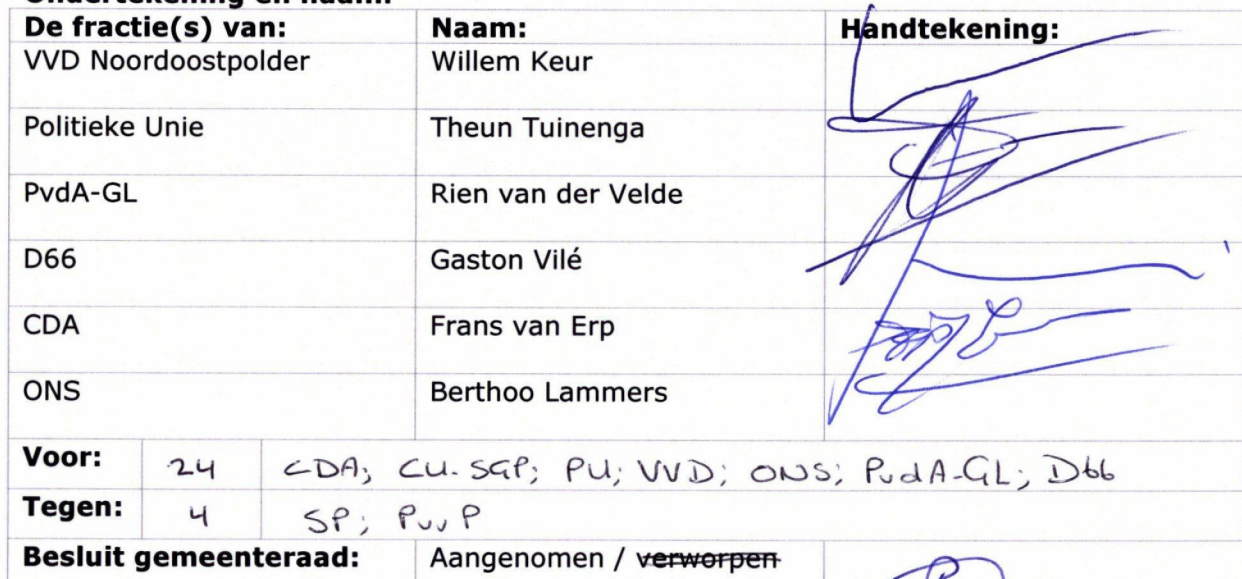 De fractie(s) van: Naam: Handtekening:
VVD Noordoostpolder Willem Keur
Politieke Unie Theun Tuinenga
PvdA-GL Rien van der Velde
D66 Gaston Vilé
CDA Frans van Erp
ONS Berthoo Lammers
Voor: 24 CDA; CU-SGP; PU; VVD; ONS; PvdA-GL; D66
Tegen: 4 SP; PvvP
Besluit gemeenteraad: Aangenomen / verworpen